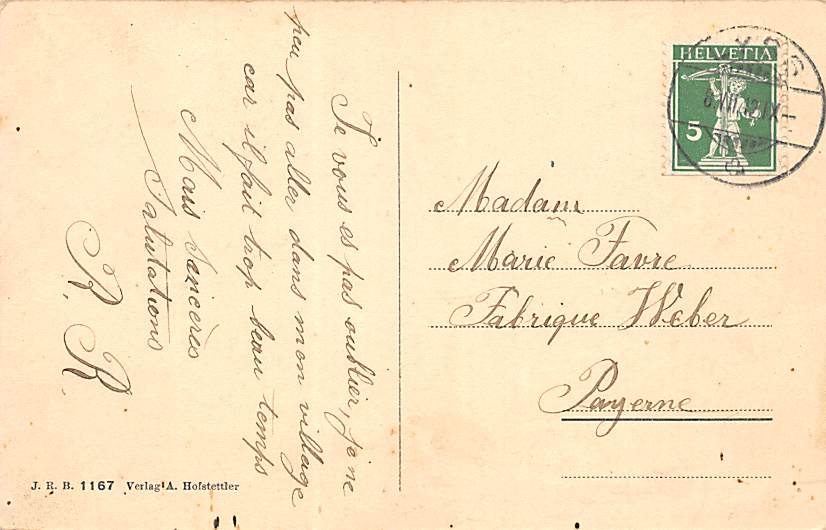 Je vous es pas oublier, je ne
peu pas aller dans mon village
car il fait trop beau temps
Mais Sancères
Salutations
R. R.
HELVETIA
5
Madam
Marie Favre
Fabrique Weber
Payerne
J. R. B. 1167 Verlag A. Hofstettler